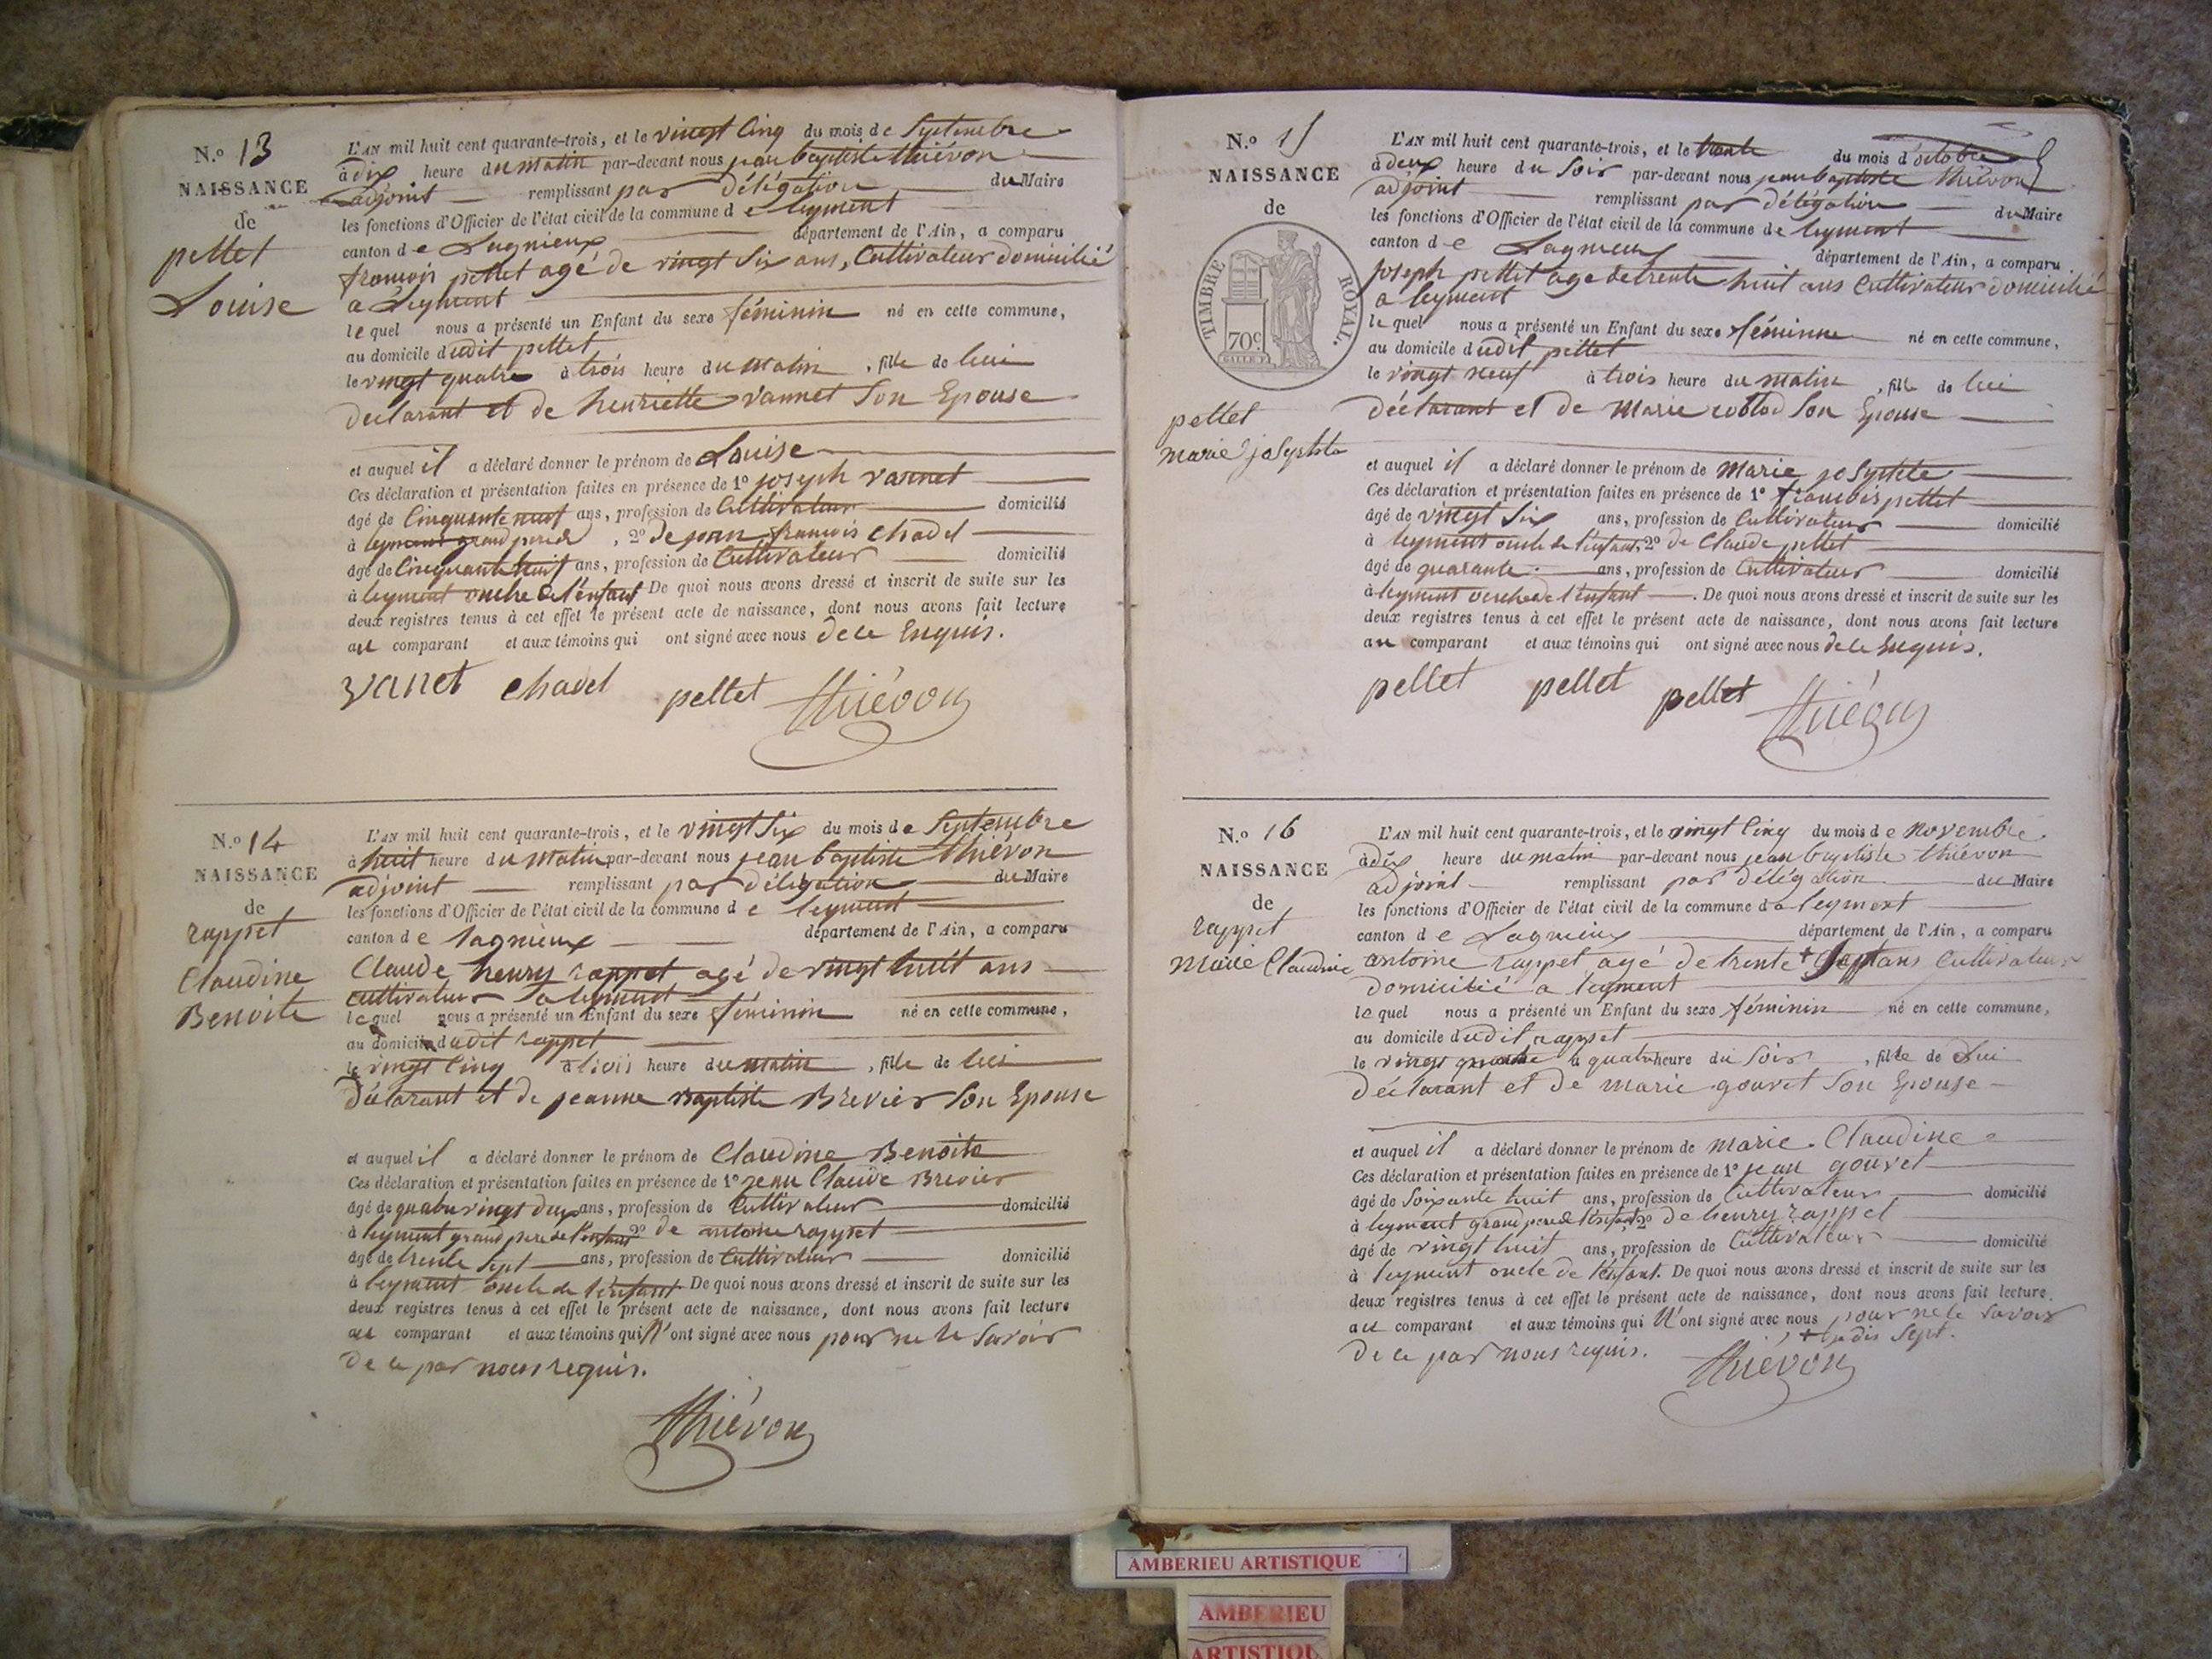 N.o 13
NAISSANCE
de
pellet
Louise
L'AN mil huit cent quarante-trois, et le vingt Cinq du mois de Septembre
à dix heure du matin par-devant nous jean baptiste thiévon
adjoint remplissant par délégation du Maire
les fonctions d'Officier de l'état civil de la commune de leyment
canton de Lagnieux département de l'Ain, a comparu
françois pellet agé de vingt Six ans, Cultivateur domicilié
a Leyment
lequel nous a présenté un Enfant du sexe féminin né en cette commune,
au domicile dudit pellet
le vingt quatre à trois heure du matin, fille de lui
déclarant et de henriette vannet Son Epouse
et auquel il a déclaré donner le prénom de Louise
Ces déclaration et présentation faites en présence de 1o joseph vannet
âgé de Cinquante neuf ans, profession de Cultivateur domicilié
à leyment grand pere, 2o de jean françois chadel
âgé de Cinquante huit ans, profession de Cultivateur domicilié
à leyment oncle de l'enfant De quoi nous avons dressé et inscrit de suite sur les
deux registres tenus à cet effet le présent acte de naissance, dont nous avons fait lecture
au comparant et aux témoins qui ont signé avec nous de ce Enquis.
vanet chadel pellet thiévon
N.o 14
NAISSANCE
de
rappet
Claudine
Benoite
L'AN mil huit cent quarante-trois, et le vingt Six du mois de Septembre
à huit heure du matin par-devant nous jean baptiste thiévon
adjoint remplissant par délégation du Maire
les fonctions d'Officier de l'état civil de la commune de leyment
canton de lagnieux département de l'Ain, a comparu
Claude henry rappet agé de vingt huit ans
cultivateur a leyment
lequel nous a présenté un Enfant du sexe féminin né en cette commune,
au domicile dudit rappet
le vingt Cinq à trois heure du matin, fille de lui
déclarant et de jeanne Baptiste Brevier Son Epouse
et auquel il a déclaré donner le prénom de Claudine Benoite
Ces déclaration et présentation faites en présence de 1o jean Claude Brevier
âgé de quatre vingt deux ans, profession de Cultivateur domicilié
à leyment grand pere de l'enfant 2o de antoine rappet
âgé de trente Sept ans, profession de Cultivateur domicilié
à leyment oncle de l'enfant De quoi nous avons dressé et inscrit de suite sur les
deux registres tenus à cet effet le présent acte de naissance, dont nous avons fait lecture
au comparant et aux témoins qui N'ont signé avec nous pour ne le Savoir
de ce par nous requis.
thiévon
N.o 15
NAISSANCE
de
TIMBRE ROYAL.
70c
pellet
marie josephte
L'AN mil huit cent quarante-trois, et le trente du mois d'octobre
à deux heure du Soir par-devant nous jean baptiste thiévon
adjoint remplissant par délégation du Maire
les fonctions d'Officier de l'état civil de la commune de leyment
canton de Lagnieux département de l'Ain, a comparu
joseph pellet age de trente huit ans Cultivateur domicilié
a leyment
lequel nous a présenté un Enfant du sexe féminine né en cette commune,
au domicile dudit pellet
le vingt neuf à trois heure du matin, fille de lui
déclarant et de Marie Son Epouse
et auquel il a déclaré donner le prénom de Marie josephte
Ces déclaration et présentation faites en présence de 1o françois pellet
âgé de vingt Six ans, profession de Cultivateur domicilié
à leyment oncle de l'enfant, 2o de Claude pellet
âgé de quarante ans, profession de Cultivateur domicilié
à leyment de l'enfant. De quoi nous avons dressé et inscrit de suite sur les
deux registres tenus à cet effet le présent acte de naissance, dont nous avons fait lecture
au comparant et aux témoins qui ont signé avec nous de ce Enquis.
pellet pellet pellet thiévon
N.o 16
NAISSANCE
de
rappet
Marie Claudine
L'AN mil huit cent quarante-trois, et le vingt Cinq du mois de Novembre
à dix heure du matin par-devant nous jean baptiste thiévon
adjoint remplissant par délégation du Maire
les fonctions d'Officier de l'état civil de la commune de leyment
canton de Lagnieux département de l'Ain, a comparu
antoine rappet agé de trente + Sept ans Cultivateur
domicilié a leyment
lequel nous a présenté un Enfant du sexe féminin né en cette commune,
au domicile dudit rappet
le vingt quatre à quatre heure du Soir, fille de Lui
déclarant et de marie gouvet Son Epouse
et auquel il a déclaré donner le prénom de Marie Claudine
Ces déclaration et présentation faites en présence de 1o jean gouvet
âgé de Soixante huit ans, profession de Cultivateur domicilié
à leyment grand pere de l'enfant 2o de henry rappet
âgé de vingt huit ans, profession de Cultivateur domicilié
à leyment oncle de l'enfant. De quoi nous avons dressé et inscrit de suite sur les
deux registres tenus à cet effet le présent acte de naissance, dont nous avons fait lecture
au comparant et aux témoins qui N'ont signé avec nous pour ne le Savoir
de ce par nous requis. + je dis Sept.
thiévon
AMBERIEU ARTISTIQUE
AMBERIEU
ARTISTIQU